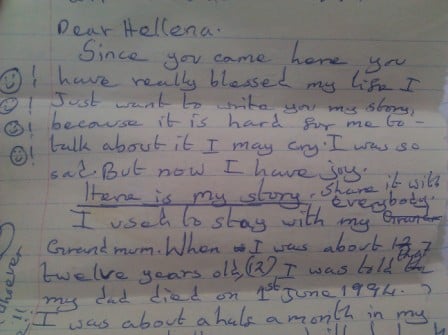 Dear Hellena.
Since you came here you
have really blessed my life I
Just want to write you my story,
because it is hard for me to-
talk about it I may cry. I was so
sad. But now I have joy.
Here is my story. Share it with
everybody.
I used to stay with my
Grandmum. When I was about
twelve years old, (12) I was told
my dad died on 1st June 1994.
I was about a hulf a month in my